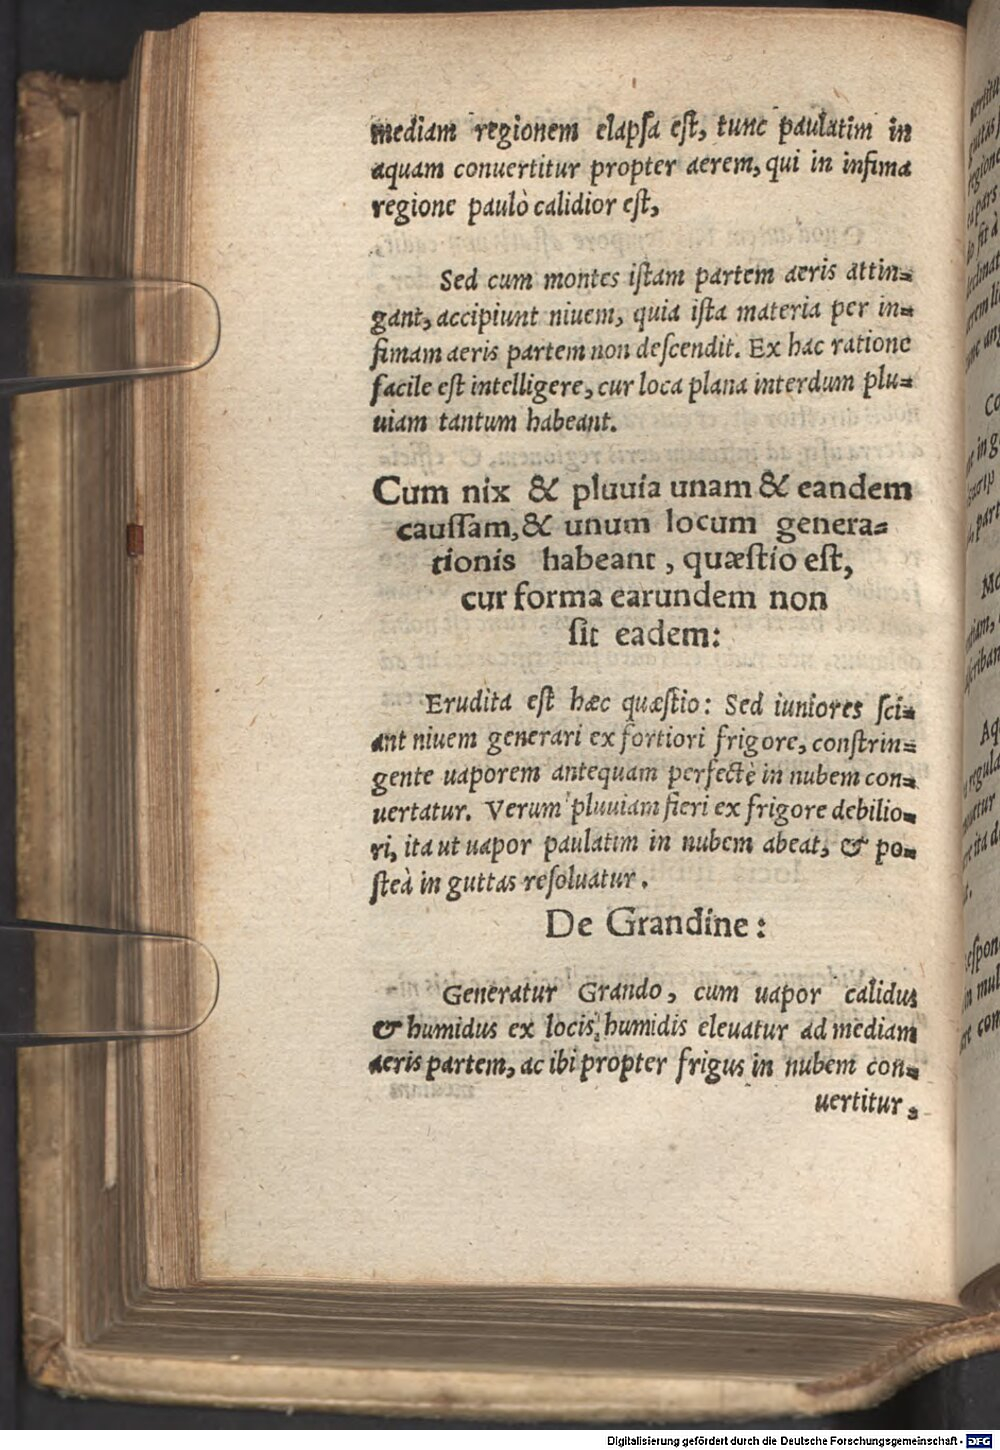 mediam regionem elapſa eſt, tunc paulatim in
aquam conuertitur propter aerem, qui in infima
regione paulò calidior eſt,
Sed cum montes iſtam partem aeris attin⸗
gant, accipiunt niuem, quia iſta materia per in⸗
fimam aeris partem non deſcendit. Ex hac ratione
facile eſt intelligere, cur loca plana interdum plu⸗
uiam tantum habeant.
Cum nix & pluuia unam & eandem
cauſſam, & unum locum genera⸗
tionis habeant, quæſtio eſt,
cur forma earundem non
ſit eadem:
Erudita eſt hæc quæſtio: Sed iuniores ſci⸗
ant niuem generari ex fortiori frigore, conſtrin⸗
gente uaporem antequam perfectè in nubem con⸗
uertatur. Verum pluuiam fieri ex frigore debilio⸗
ri, ita ut uapor paulatim in nubem abeat, & po⸗
ſteà in guttas reſoluatur.
De Grandine:
Generatur Grando, cum uapor calidus
& humidus ex locis humidis eleuatur ad mediam
aeris partem, ac ibi propter frigus in nubem con⸗
uertitur,
Digitalisierung gefördert durch die Deutsche Forschungsgemeinschaft - DFG